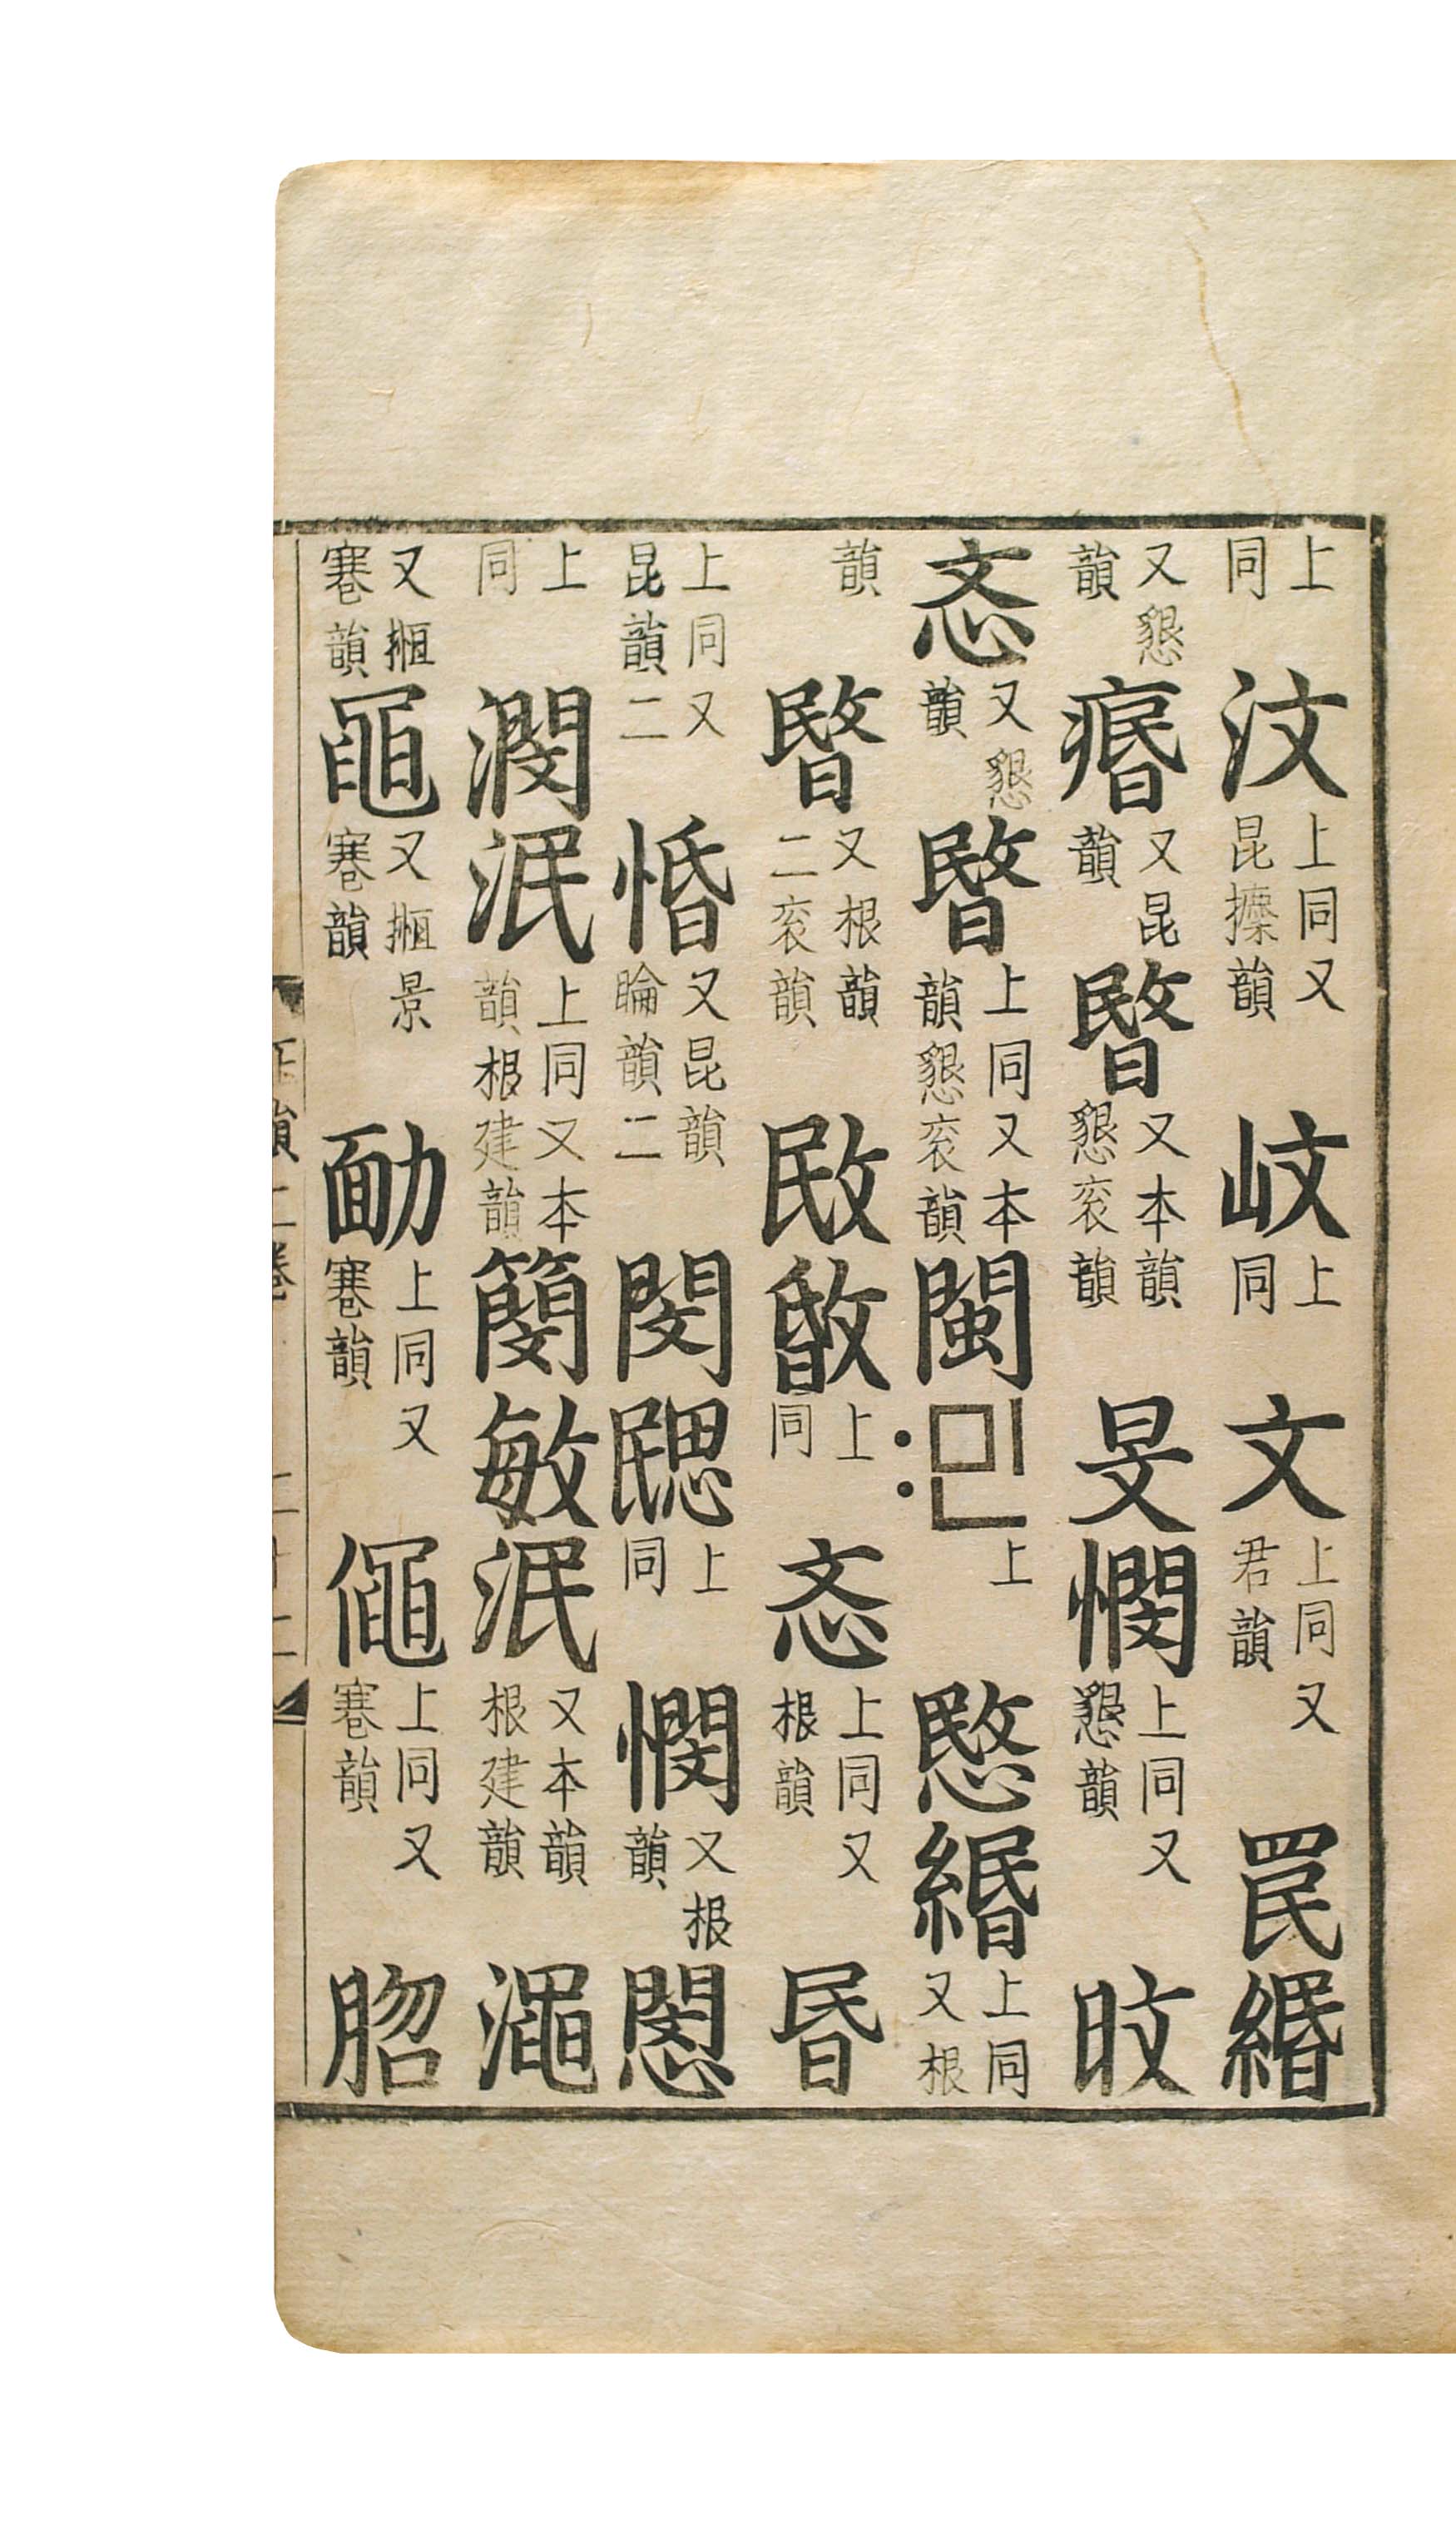 上同汶上同又昆㩲韻岐上同文上同又君韻罠緡
又懇韻瘖又昆韻暋又本韻懇衮韻旻憫上同又懇韻旼
忞又懇韻暋上同又本韻懇衮韻閩민上愍緡上同又根
韻暋又根韻二衮韻敃敯上同忞上同又根韻昬
上同又昆韻二惛又昆韻睔韻二閔上同憫又根韻閺
上同潣泯上同又本韻根建韻簢敏泯又本韻根建韻澠
又搄寋韻黽又搄景寋韻勔上同又寋韻僶上同又寋韻脗